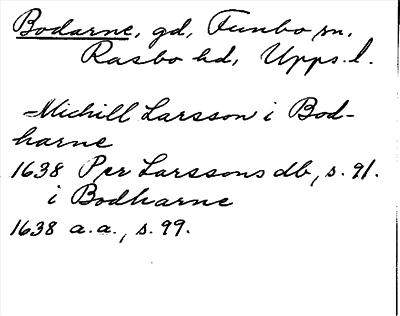 Bodarne, gd, Funbo sn,
Rasbo hd, Upps. l.
Michill Larsson i Bod-
harne
1638 Per Larssons db, s. 91.
i Bodharne
1638 a. a., s. 99.